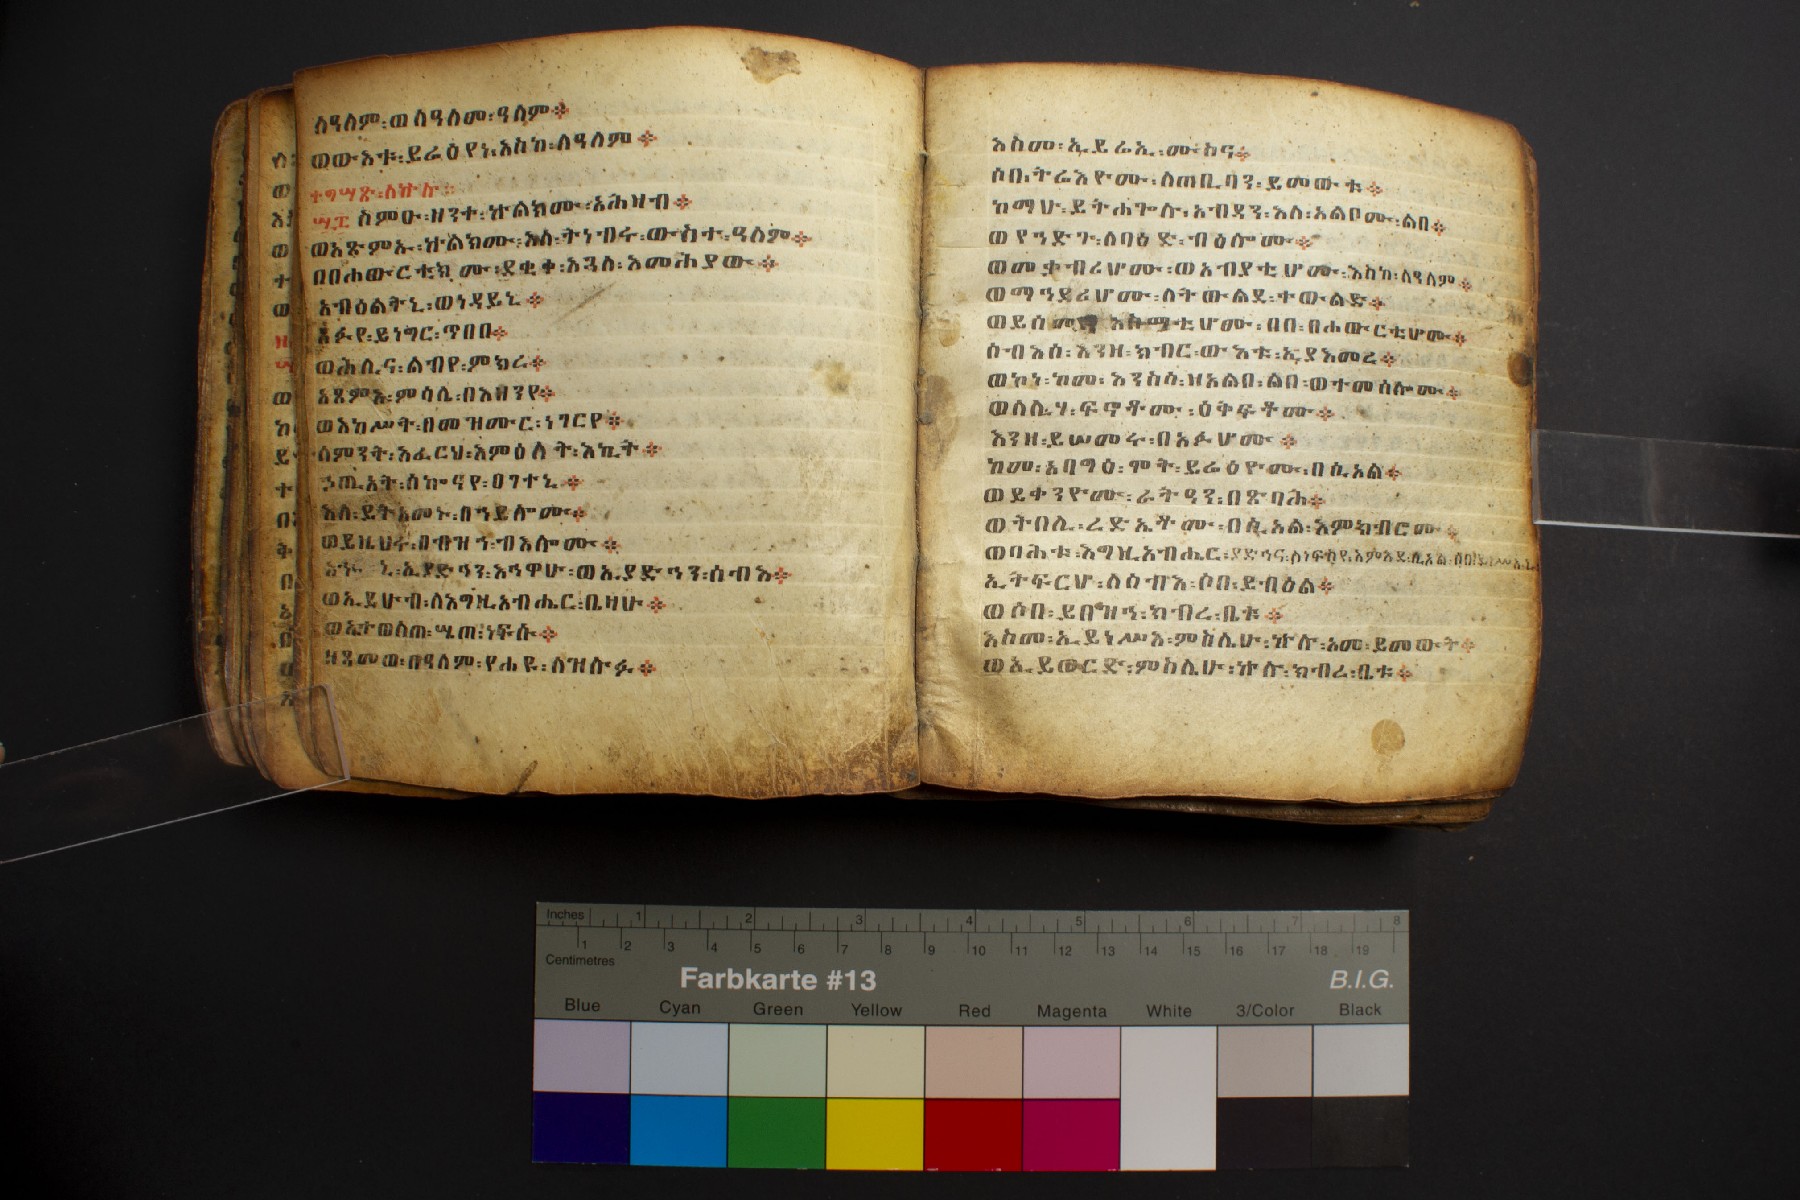 ለዓለም፡ወለዓለመ፡ዓለም፨
ወውእቱ፡ይሬዕየነ፡እስከ፡ለዓለም፨
ተግሣጽ፡ለኵሉ፡፡
ስምዑ፡ዘንተ፡ኵልክሙ፡አሕዛብ፨
ወአጽምኡ፡ኵልክሙ፡እለ፡ትነብሩ፡ውስተ፡ዓለም፨
በበሐውርቲክሙ፡ደቂቀ፡እጓለ፡እመሕያው፨
አብዕልትኒ፡ወነዳይኒ፨
አፉየ፡ይነግር፡ጥበበ፨
ወሕሊና፡ልብየ፡ምክረ፨
አጸምእ፡ምሳሌ፡በእዘንየ፨
ወእከሥት፡በመዝሙር፡ነገርየ፨
ለምንት፡እፈርህ፡እምዕለት፡እኪት፨
ኃጢአት፡ሰኰናየ፡ዐገተኒ፨
እለ፡ይትአመኑ፡በኀይሎሙ፨
ወይዜህሩ፡በብዝኀ፡ብእሎሙ፨
ኢያድኅን፡እኅዋሁ፡ወኢያድኅን፡ሰብእ፨
ወኢይሁብ፡ለእግዚአብሔር፡ቤዛሁ፨
ወኢተወላጠ፡ሤጠ፡ነፍሱ፨
ዘጻመወ፡በዓለም፡የሐዩ፡ለዝሉፉ፨
እስመ፡ኢይሬኢ፡ሙስና፨
ሶበ፡ትሬእዮሙ፡ለጠቢባን፡ይመውቱ፨
ከማሁ፡ይትሐጐሉ፡አብዳን፡እለ፡አልቦሙ፡ልበ፨
ወየኀድጉ፡ለባዕድ፡ብዕሎሙ፨
ወመቃብሪሆሙ፡ወአብያቲሆሙ፡እስከ፡ለዓለም፨
ወማኀደሪሆሙ፡ለትውልደ፡ተውልድ፨
ወይሰመይ፡አስማቲሆሙ፡በበ፡በሐውርቲሆሙ፨
ሰብእሰ፡እንዘ፡ክቡር፡ውእቱ፡ኢያእመረ፨
ወኮነ፡ከመ፡እንስሳ፡ዘአልቦ፡ልበ፡ወተመሰሎሙ፨
ወሰሊሃ፡ፍኖቶሙ፡ዕቅፍቶሙ፨
እንዘ፡ይሠመሩ፡በአፉሆሙ፨
ከመ፡አባግዕ፡ሞት፡ይሬዕዮሙ፡በሲኦል፨
ወይቀንዮሙ፡ራትዓን፡በጽባሕ፨
ወትበሊ፡ረድኤቶሙ፡በሲኦል፡እምክብሮሙ፨
ወባሕቱ፡እግዚአብሔር፡ያድኅና፡ለነፍስየ፡እምእደ፡ሲኦል፡ሶበ፡ይነሥኡኒ
ኢትፍርሆ፡ለሰብእ፡ሶበ፡ይብዕል፨
ወሶበ፡ይበዝኅ፡ክብረ፡ቤቱ፨
እስመ፡ኢይነሥእ፡ምስሌሁ፡ኵሎ፡አመ፡ይመውት፨
ወኢይወርድ፡ምስሌሁ፡ኵሉ፡ክብረ፡ቤቱ፨
Inches 1 2 3 4 5 6 7 8
1 2 3 4 5 6 7 8 9 10 11 12 13 14 15 16 17 18 19
Centimetres
Farbkarte #13 B.I.G.
Blue Cyan Green Yellow Red Magenta White 3/Color Black